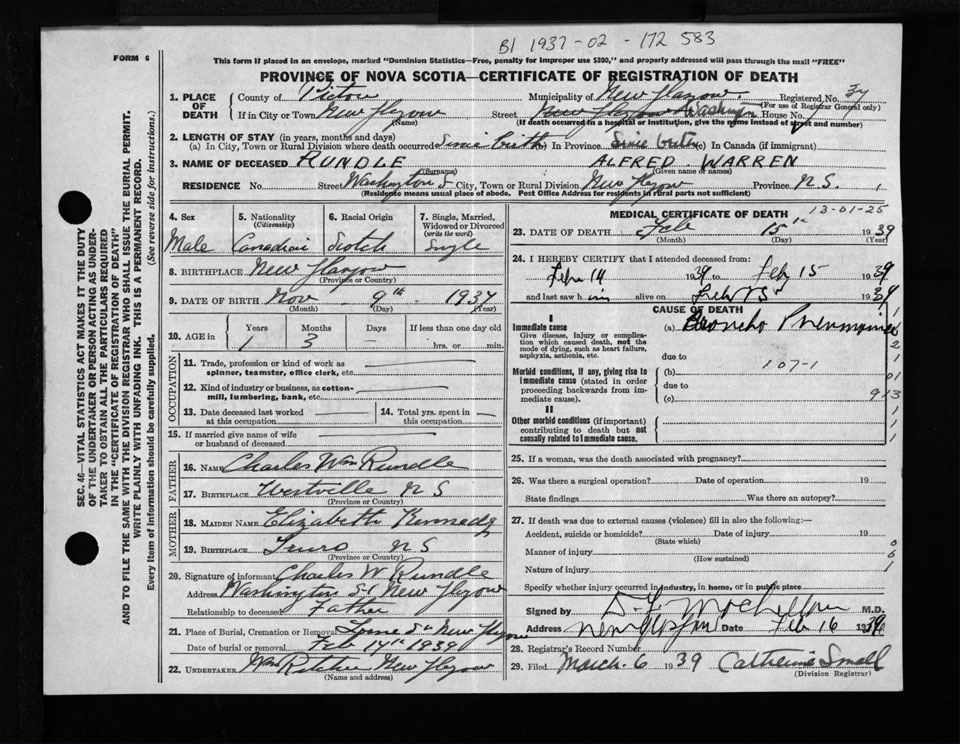 B1 1937-02-172 583
FORM 6
This form if placed in an envelope, marked "Dominion Statistics—Free, penalty for improper use $300," and properly addressed will pass through the mail "FREE"
PROVINCE OF NOVA SCOTIA—CERTIFICATE OF REGISTRATION OF DEATH
1. PLACE OF DEATH
County of Pictou Municipality of New Glasgow Registered No. 34
(For use of Registrar General only)
If in City or Town New Glasgow Street New Glasgow Washington House No.
(Name) (If death occurred in a hospital or institution, give the name instead of street and number)
2. LENGTH OF STAY (in years, months and days)
(a) In City, Town or Rural Division where death occurred Since birth (b) In Province Since birth (c) In Canada (if immigrant)
3. NAME OF DECEASED RUNDLE ALFRED WARREN
(Surname) (Given name or names)
RESIDENCE No. Street Washington St City, Town or Rural Division New Glasgow Province N.S.
(Residence means usual place of abode. Post Office Address for residents in rural parts not sufficient)
4. Sex 5. Nationality (Citizenship) 6. Racial Origin 7. Single, Married, Widowed or Divorced (write the word)
Male Canadian Scotch Single
8. BIRTHPLACE New Glasgow
(Province or Country)
9. DATE OF BIRTH Nov 9th 1937
(Month) (Day) (Year)
10. AGE in Years Months Days If less than one day old
1 3 — hrs. or min.
OCCUPATION
11. Trade, profession or kind of work as spinner, teamster, office clerk, etc. —
12. Kind of industry or business, as cotton-mill, lumbering, bank, etc. —
13. Date deceased last worked at this occupation — 14. Total yrs. spent in this occupation —
15. If married give name of wife or husband of deceased —
FATHER
16. NAME Charles Wm Rundle
17. BIRTHPLACE Westville N S
(Province or Country)
MOTHER
18. MAIDEN NAME Elizabeth Kennedy
19. BIRTHPLACE Truro N S
(Province or Country)
20. Signature of informant Charles W Rundle
Address Washington St New Glasgow
Relationship to deceased Father
21. Place of Burial, Cremation or Removal Lorne St New Glasgow
Date of burial or removal Feb 17th 1939
22. UNDERTAKER New Glasgow
(Name and address)
MEDICAL CERTIFICATE OF DEATH 13-01-25
23. DATE OF DEATH Feb 15th 1939
(Month) (Day) (Year)
24. I HEREBY CERTIFY that I attended deceased from:
Feb 14 1939 to Feb 15 1939
and last saw him alive on Feb 15 1939
CAUSE OF DEATH
I
Immediate cause
Give disease, injury or complication which caused death, not the mode of dying, such as heart failure, asphyxia, asthenia, etc.
(a) Broncho Pneumonia
due to
Morbid conditions, if any, giving rise to immediate cause (stated in order proceeding backwards from immediate cause).
(b) 107-1
due to
(c)
II
Other morbid conditions (if important) contributing to death but not causally related to immediate cause.
25. If a woman, was the death associated with pregnancy?
26. Was there a surgical operation? Date of operation 19
State findings Was there an autopsy?
27. If death was due to external causes (violence) fill in also the following:—
Accident, suicide or homicide? Date of injury 19
(State which)
Manner of injury
(How sustained)
Nature of injury
Specify whether injury occurred in industry, in home, or in public place
Signed by M.D.
Address New Glasgow Date Feb 16 1939
28. Registrar's Record Number
29. Filed March 6 1939 Catherine Small
(Division Registrar)
SEC. 46—VITAL STATISTICS ACT MAKES IT THE DUTY
OF THE UNDERTAKER OR PERSON ACTING AS UNDER-
TAKER TO OBTAIN ALL THE PARTICULARS REQUIRED
IN THE "CERTIFICATE OF REGISTRATION OF DEATH"
AND TO FILE THE SAME WITH THE DIVISION REGISTRAR WHO SHALL ISSUE THE BURIAL PERMIT.
WRITE PLAINLY WITH UNFADING INK. THIS IS A PERMANENT RECORD.
Every item of information should be carefully supplied. (See reverse side for instructions.)